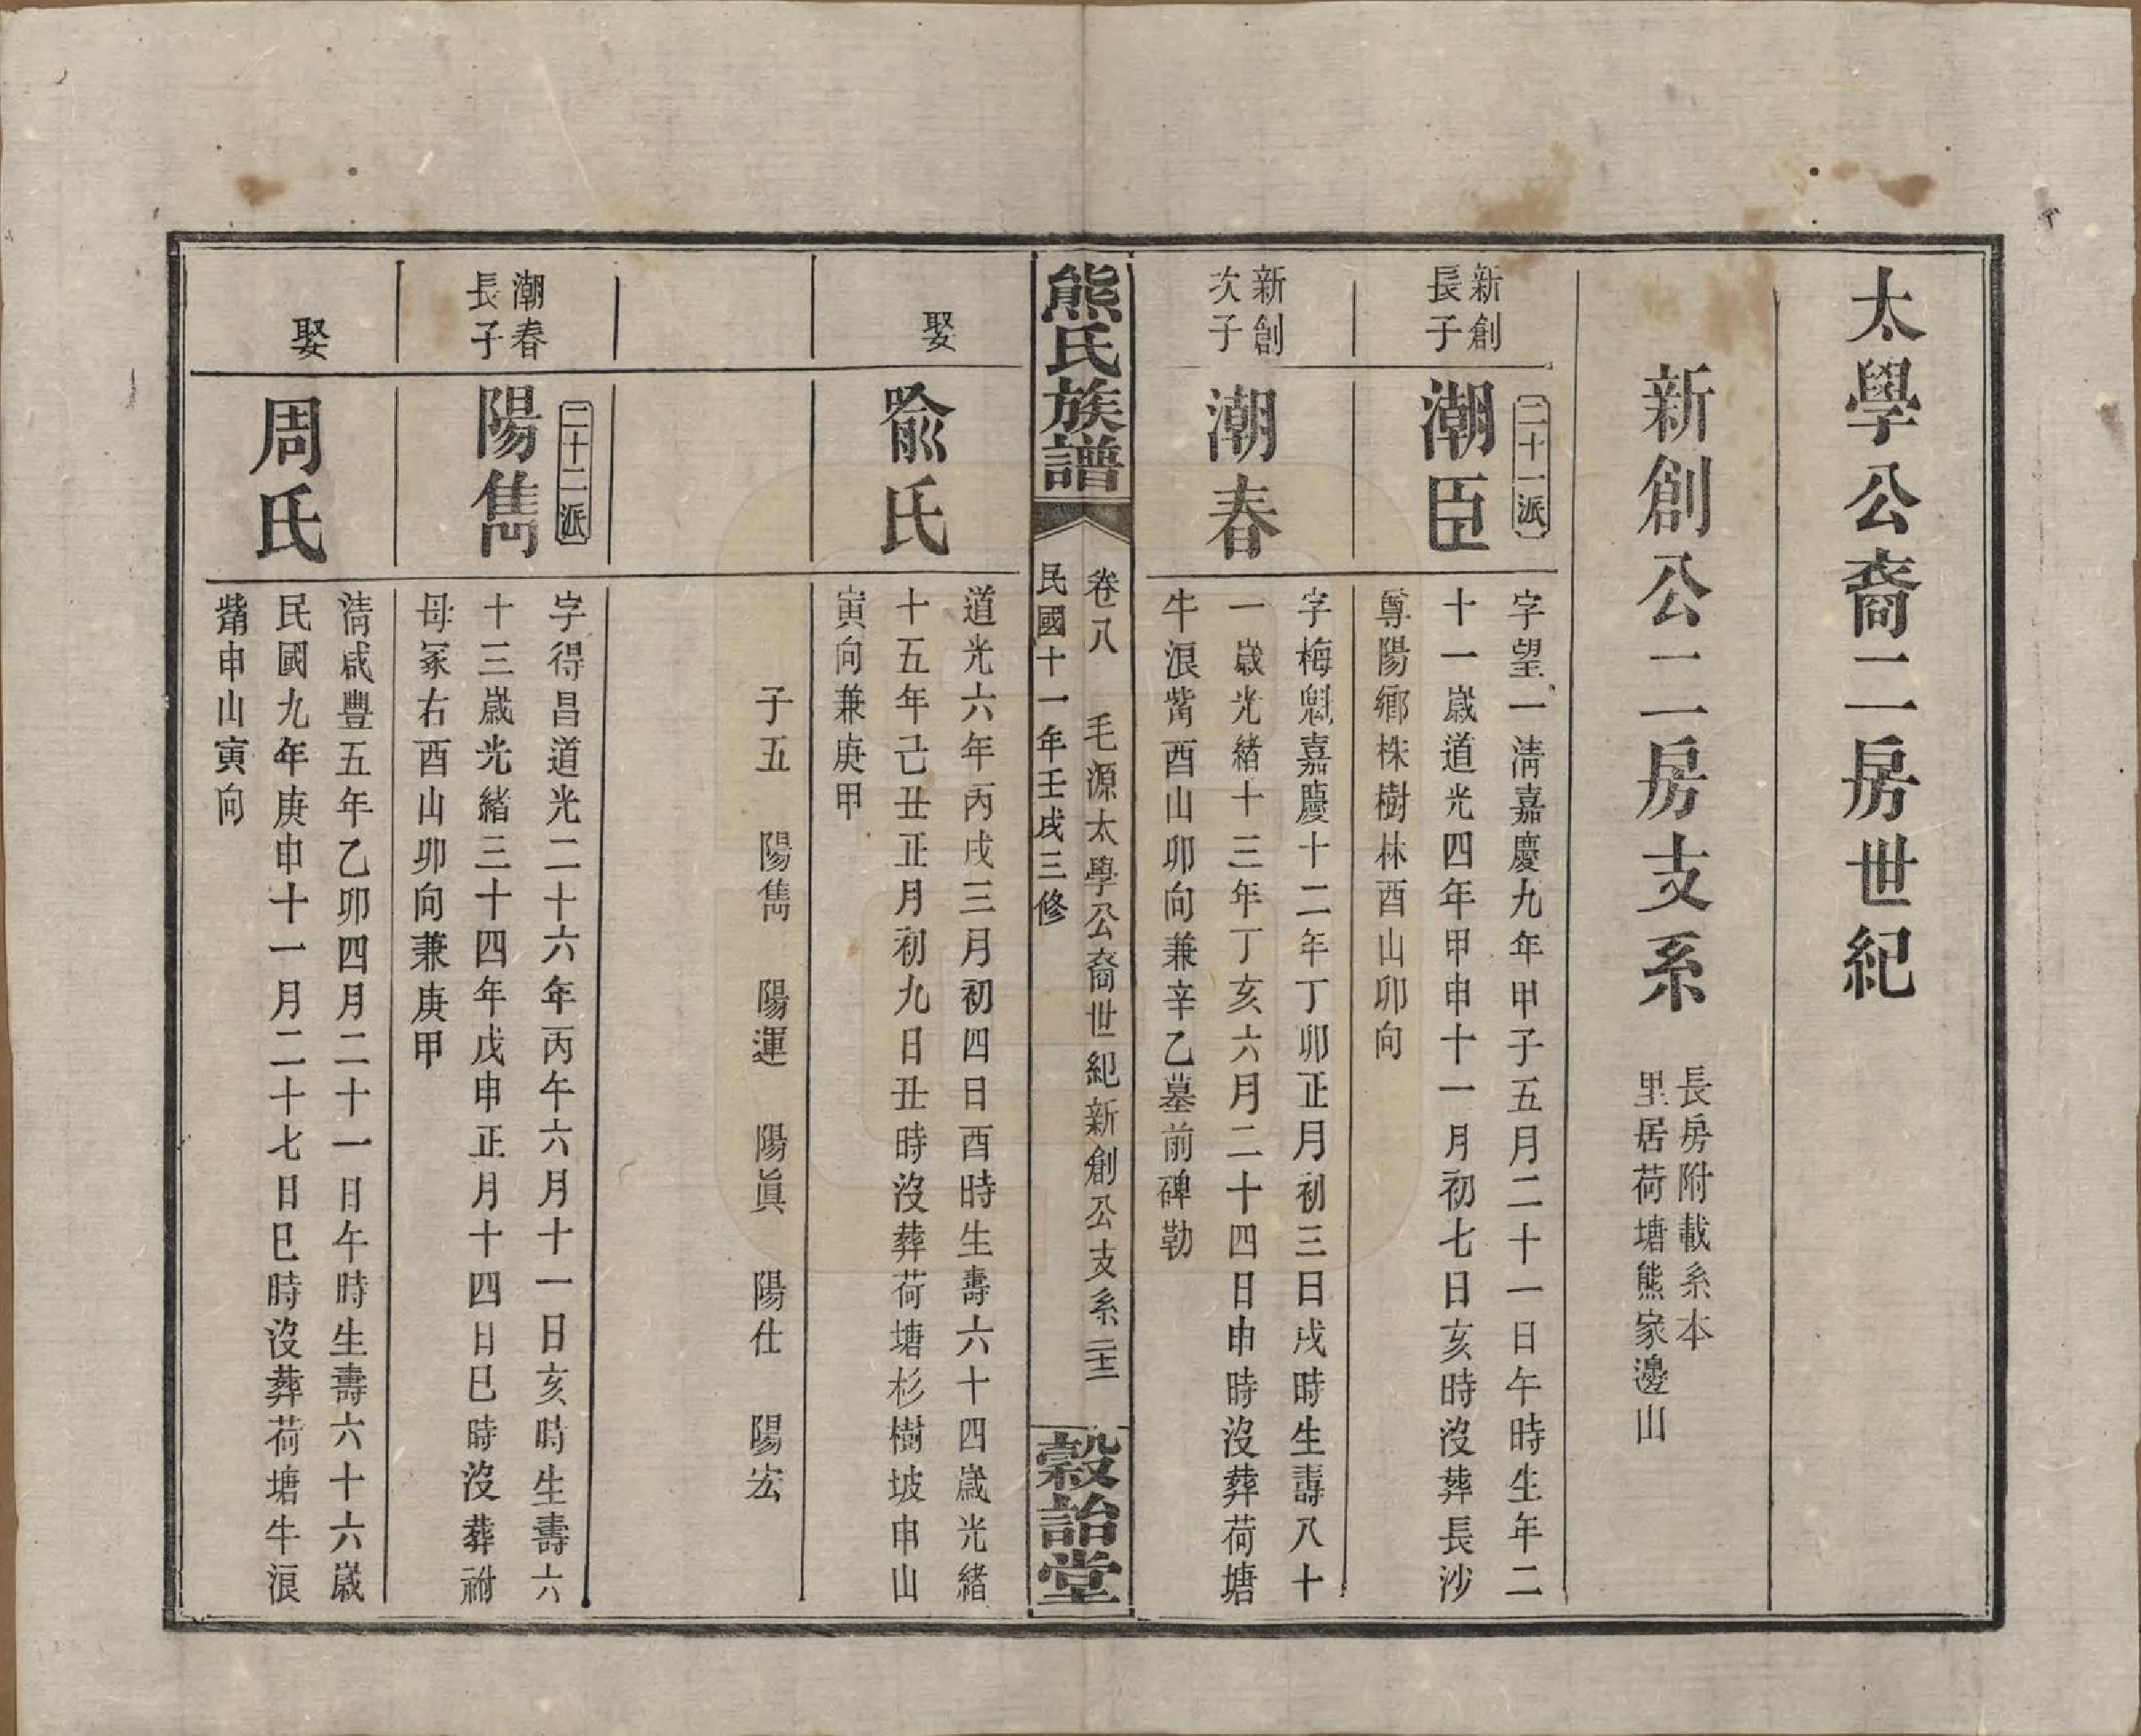 太學公裔二房世紀
新創公二房支系
長房附載系本
里居荷塘熊家邊山
二十一派
新創
長子
潮臣
字望一清嘉慶九年甲子五月二十一日午時生年二
十一歲道光四年甲申十一月初七日亥時沒葬長沙
尊陽鄉株樹林酉山卯向
新創
次子
潮春
字梅魁嘉慶十二年丁卯正月初三日戌時生壽八十
一歲光緒十三年丁亥六月二十四日申時沒葬荷塘
牛浪觜酉山卯向兼辛乙墓前碑勒
熊氏族譜
卷八 毛源太學公裔世紀新創公支系
民國十一年壬戌三修
穀詒堂
娶
喩氏
道光六年丙戌三月初四日酉時生壽六十四歲光緒
十五年己丑正月初九日丑時沒葬荷塘杉樹坡申山
寅向兼庚甲
子五 陽雋 陽運 陽眞 陽仕 陽宏
二十二派
潮春
長子
陽雋
字得昌道光二十六年丙午六月十一日亥時生壽六
十三歲光緒三十四年戊申正月十四日巳時沒葬祔
母冢右酉山卯向兼庚甲
娶
周氏
清咸豐五年乙卯四月二十一日午時生壽六十六歲
民國九年庚申十一月二十七日巳時沒葬荷塘牛浪
觜申山寅向